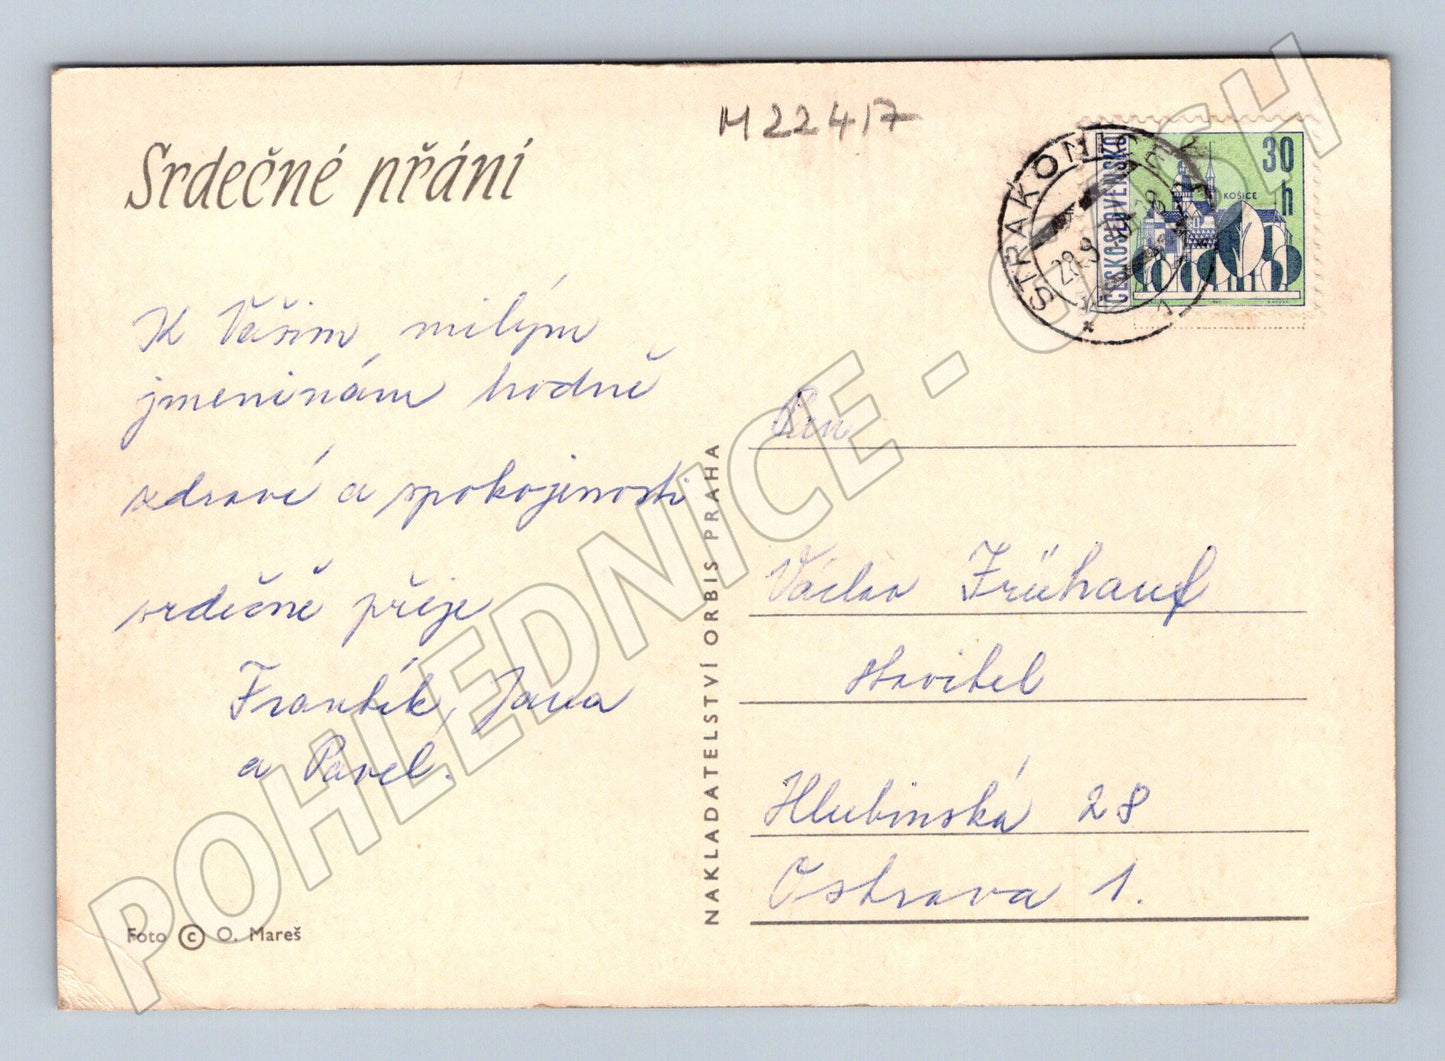 M22417
Srdečné přání
STRAKONICE
28.9.
ČESKOSLOVENSKO
30 h
KOŠICE
K Vašim milým
jmeninám hodně
zdraví a spokojenosti
srdečně přeje
Frantík, Jana
a Pavel.
Foto © O. Mareš
NAKLADATELSTVÍ ORBIS PRAHA
Pan
Václav Frühauf
stavitel
Hlubinská 28
Ostrava 1.
POHLEDNICE - CZECH